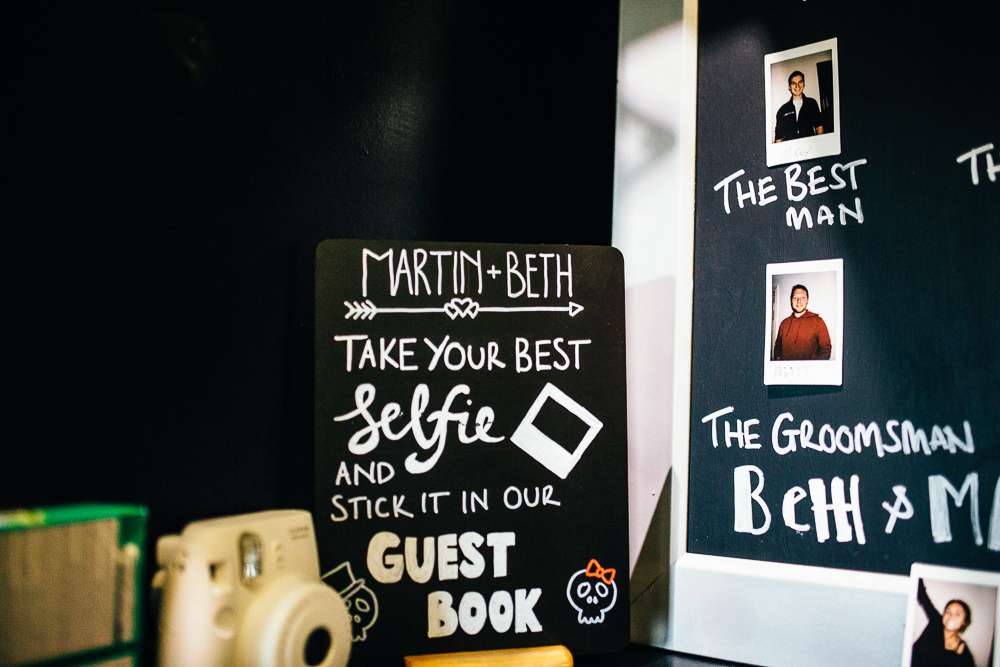 MARTIN + BETH
TAKE YOUR BEST
Selfie
AND
STICK IT IN OUR
GUEST
BOOK
THE BEST
MAN
THE GROOMSMAN